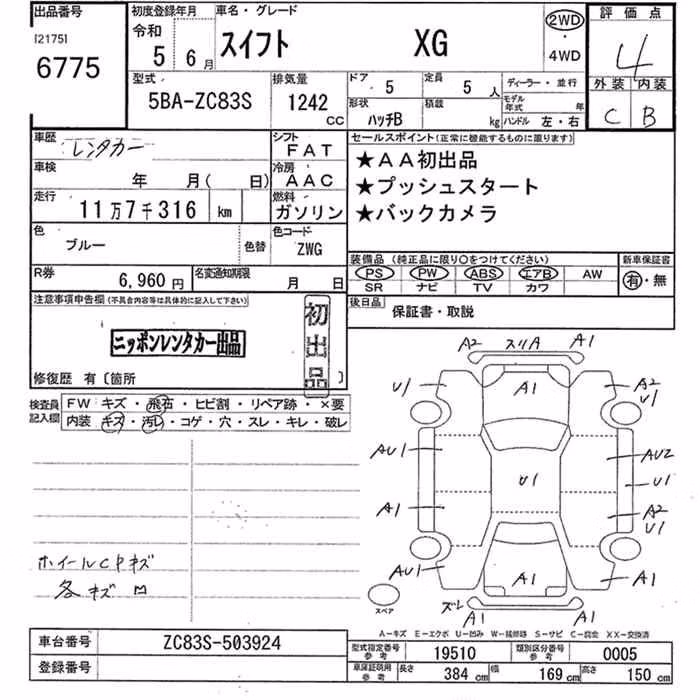 出品番号
[2175]
6775
初度登録年月
令和
5 6月
車名・グレード
スイフト XG
2WD
・
4WD
評価点
4
外装 内装
C B
型式
5BA-ZC83S
排気量
1242 CC
ドア 5
定員 5 人
形状 ハッチB
積載 kg
ディーラー・並行
モデル年式 年
ハンドル 左・右
車歴
レンタカー
シフト
FAT
車検
年 月( 日)
冷房
AAC
走行
11万7千316 km
燃料
ガソリン
色
ブルー
色替
色コード
ZWG
R券
6,960 円
名変通知期限
月 日
セールスポイント(正常に機能するものに限ります)
★AA初出品
★プッシュスタート
★バックカメラ
装備品 (純正品に限り○をつけてください)
PS PW ABS エアB AW
SR ナビ TV カワ
新車保証書
有・無
後日品
保証書・取説
注意事項申告欄(不具合内容等は具体的に記入して下さい)
ニッポンレンタカー出品
初出品
修復歴 有〔箇所 〕
検査員記入欄
FW キズ・飛石・ヒビ割・リペア跡・×要
内装 キズ・汚レ・コゲ・穴・スレ・キレ・破レ
ホイールCPキズ
各キズ凹
A2 スリA A1
U1 A1 A2 U1
AU1 U1 AU2
U1
A1 A2 U1
AU1 A1 A1
スペア
ズレ A1 A1
A-キズ E-エクボ U-凹み W-補修跡 S-サビ C-腐食 XX-交換済
車台番号 ZC83S-503924
登録番号
型式指定番号 参考 19510
類別区分番号 参考 0005
車庫証明用 参考 長さ 384 cm 幅 169 cm 高さ 150 cm